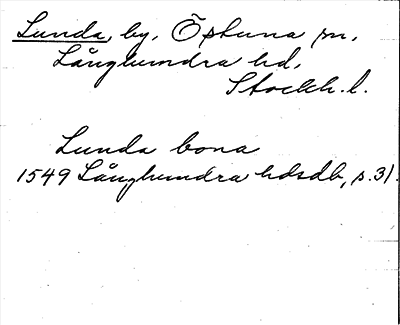 Lunda, by, Östuna sn,
Långhundra hd,
Stockh. l.
Lunda bona
1549 Långhundra hdsdb, s. 31.